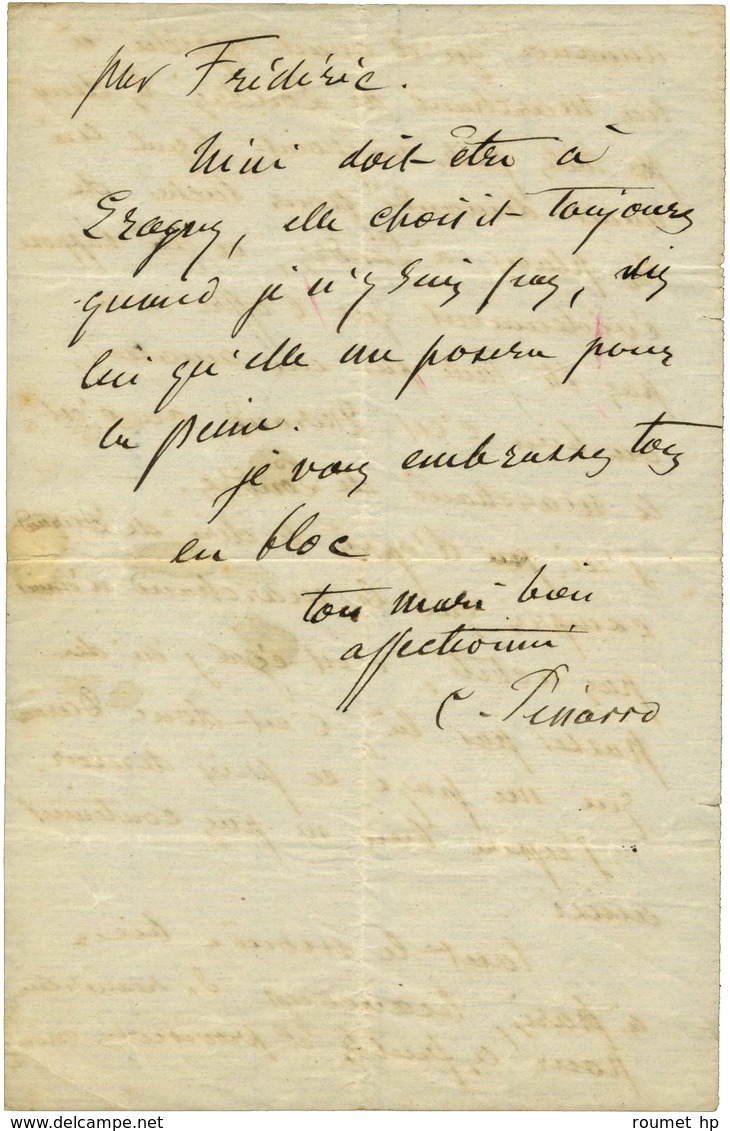 par Frédéric.
Nini doit être à
Eragny, elle choisit toujours
quand je n'y suis pas, dis
lui qu'elle me posera pour
la peine.
je vous embrasse tous
en bloc
ton mari bien
affectionné
C. Pissarro
roumet hp